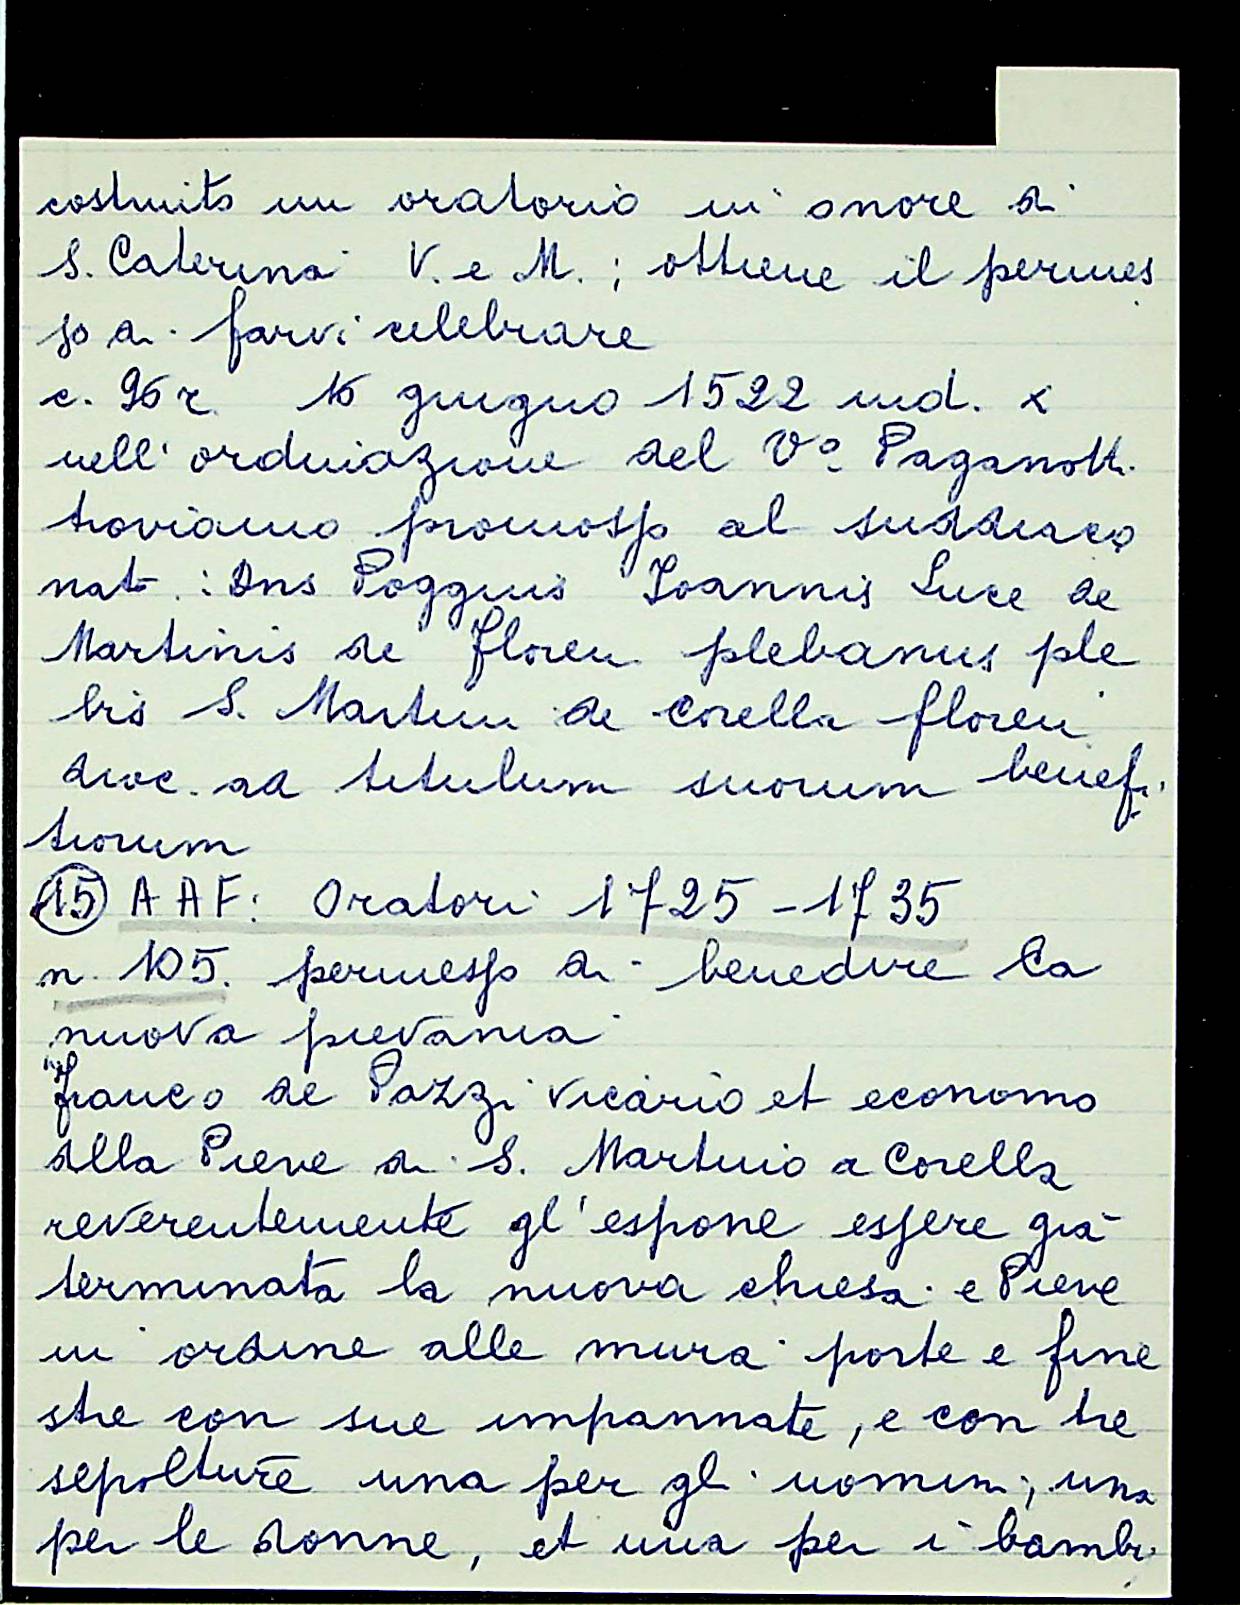 costruito un oratorio in onore di
S. Caterina V. e M. ; ottiene il permes
so di farvi celebrare
c. 96 r. 16 giugno 1522 ind. x
nell'ordinazione del Vº Paganotti
troviamo promosso al suddiaco
nato : Dns Poggius Joannis Luce de
Martinis de Floren. plebanus ple
bis S. Martini de Corella floren
dioc. ad titulum suorum benefi
tiorum
(15) A A F: Oratori 1725-1735
n. 105. permesso di benedire la
nuova pievania
"Franco de Pazzi vicario et economo
alla Pieve di S. Martino a Corella
reverentemente gl'espone essere già
terminata la nuova chiesa e Pieve
in ordine alle mura porte e fine
stre con sue impannate, e con tre
sepolture una per gli uomini, una
per le donne, et una per i bambi